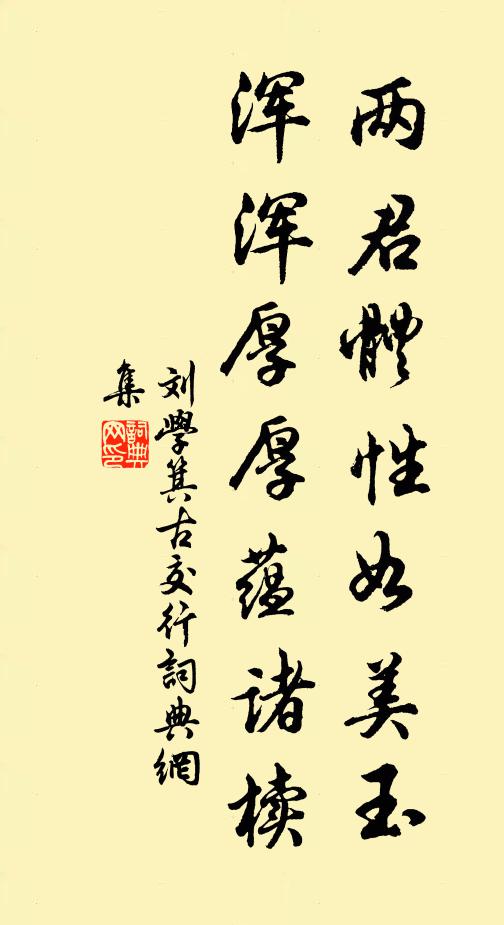 两君體性如美玉
浑浑厚厚蕴諸椟
刘學箕古交行詞典網
集
詞典
网印